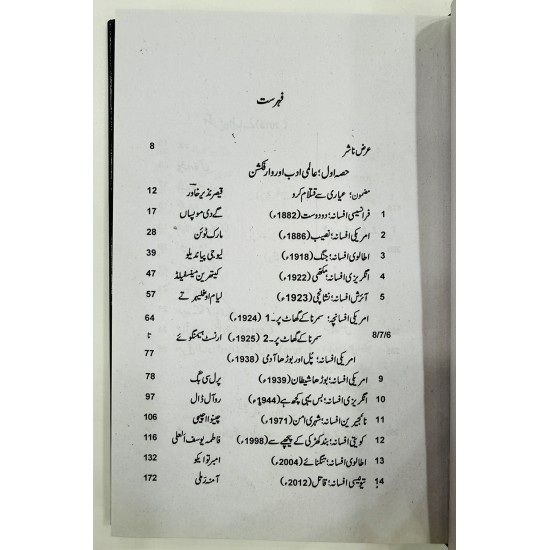 فہرست
عرض ناشر 8
حصہ اول؛ عالمی ادب اور وار فکشن
مضمون؛ عیاری سے قتلام کرو قیصر نذیر خاور 12
1 فرانسیسی افسانہ؛ دو دوست (1882ء) گے دی موپساں 17
2 امریکی افسانہ؛ نصیب (1886ء) مارک ٹوئن 28
3 اطالوی افسانہ؛ جنگ (1918ء) لیوجی پیراندیلو 39
4 انگریزی افسانہ؛ مکھی (1922ء) کیتھرین مینسفیلڈ 47
5 آئرش افسانہ؛ نشانچی (1923ء) لیام او فلیہرٹے 57
امریکی افسانچہ؛ سمرنا کے گھاٹ پر۔1 (1924ء) 64
8/7/6 سمرنا کے گھاٹ پر۔2 (1925ء) ارنسٹ ہیمنگوئے تا
امریکی افسانہ؛ پُل اور بوڑھا آدمی (1938ء) 77
9 امریکی افسانہ؛ بوڑھا شیطان (1939ء) پرل سی بک 78
10 انگریزی افسانہ؛ بس یہی کچھ ہے (1944ء) روآل ڈال 97
11 نائجیرین افسانہ؛ شہری امن (1971ء) چینوا اچیبی 106
12 کویتی افسانہ؛ بند کھڑکی کے پیچھے سے (1998ء) فاطمہ یوسف العلی 116
13 اطالوی افسانہ؛ تنگنائے (2004ء) امبرتو ایکو 132
14 تیونیسی افسانہ؛ قاتل (2012ء) آمنہ رملی 172